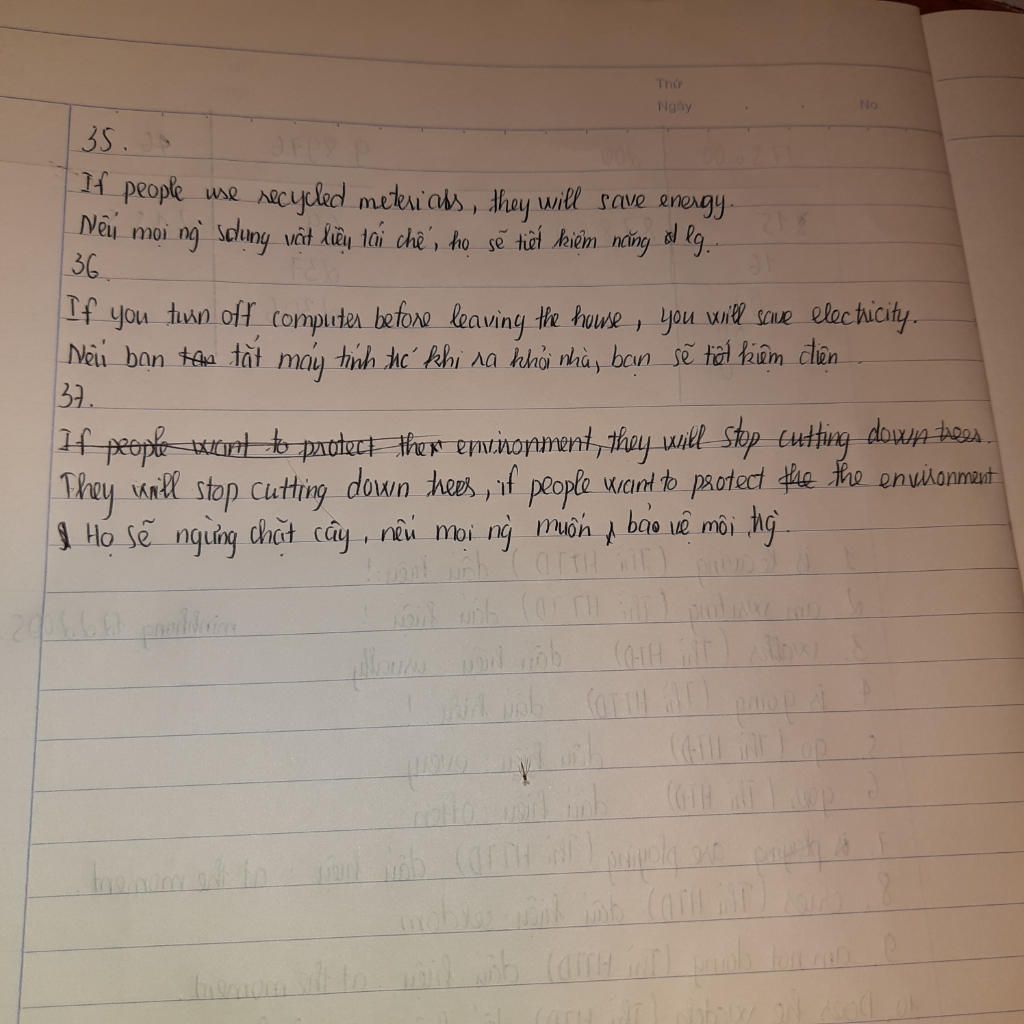 Thứ
Ngày . . No
35.
If people use recycled meterials, they will save energy.
Nếu mọi ng` sdụng vật liệu tái chế, họ sẽ tiết kiệm năng lg.
36
If you turn off computer before leaving the house, you will save electricity.
Nếu bạn tắt máy tính trc' khi ra khỏi nhà, bạn sẽ tiết kiệm điện
37.
If people want to protect the environment, they will stop cutting down trees.
They will stop cutting down trees, if people want to protect the the environment
Họ sẽ ngừng chặt cây, nếu mọi ng` muốn bảo vệ môi trg`